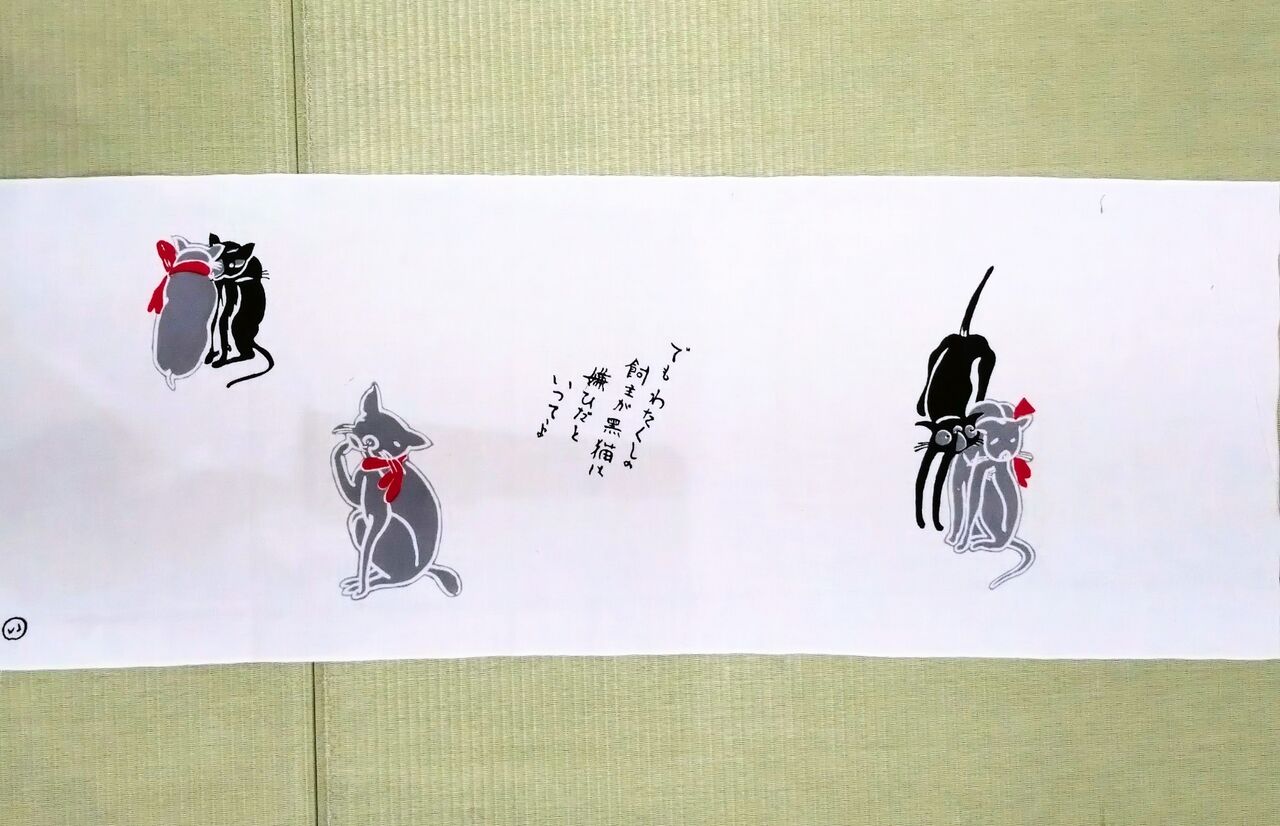 でもわたくしの
飼主が黑猫は
嫌ひだと
いつてゝよ